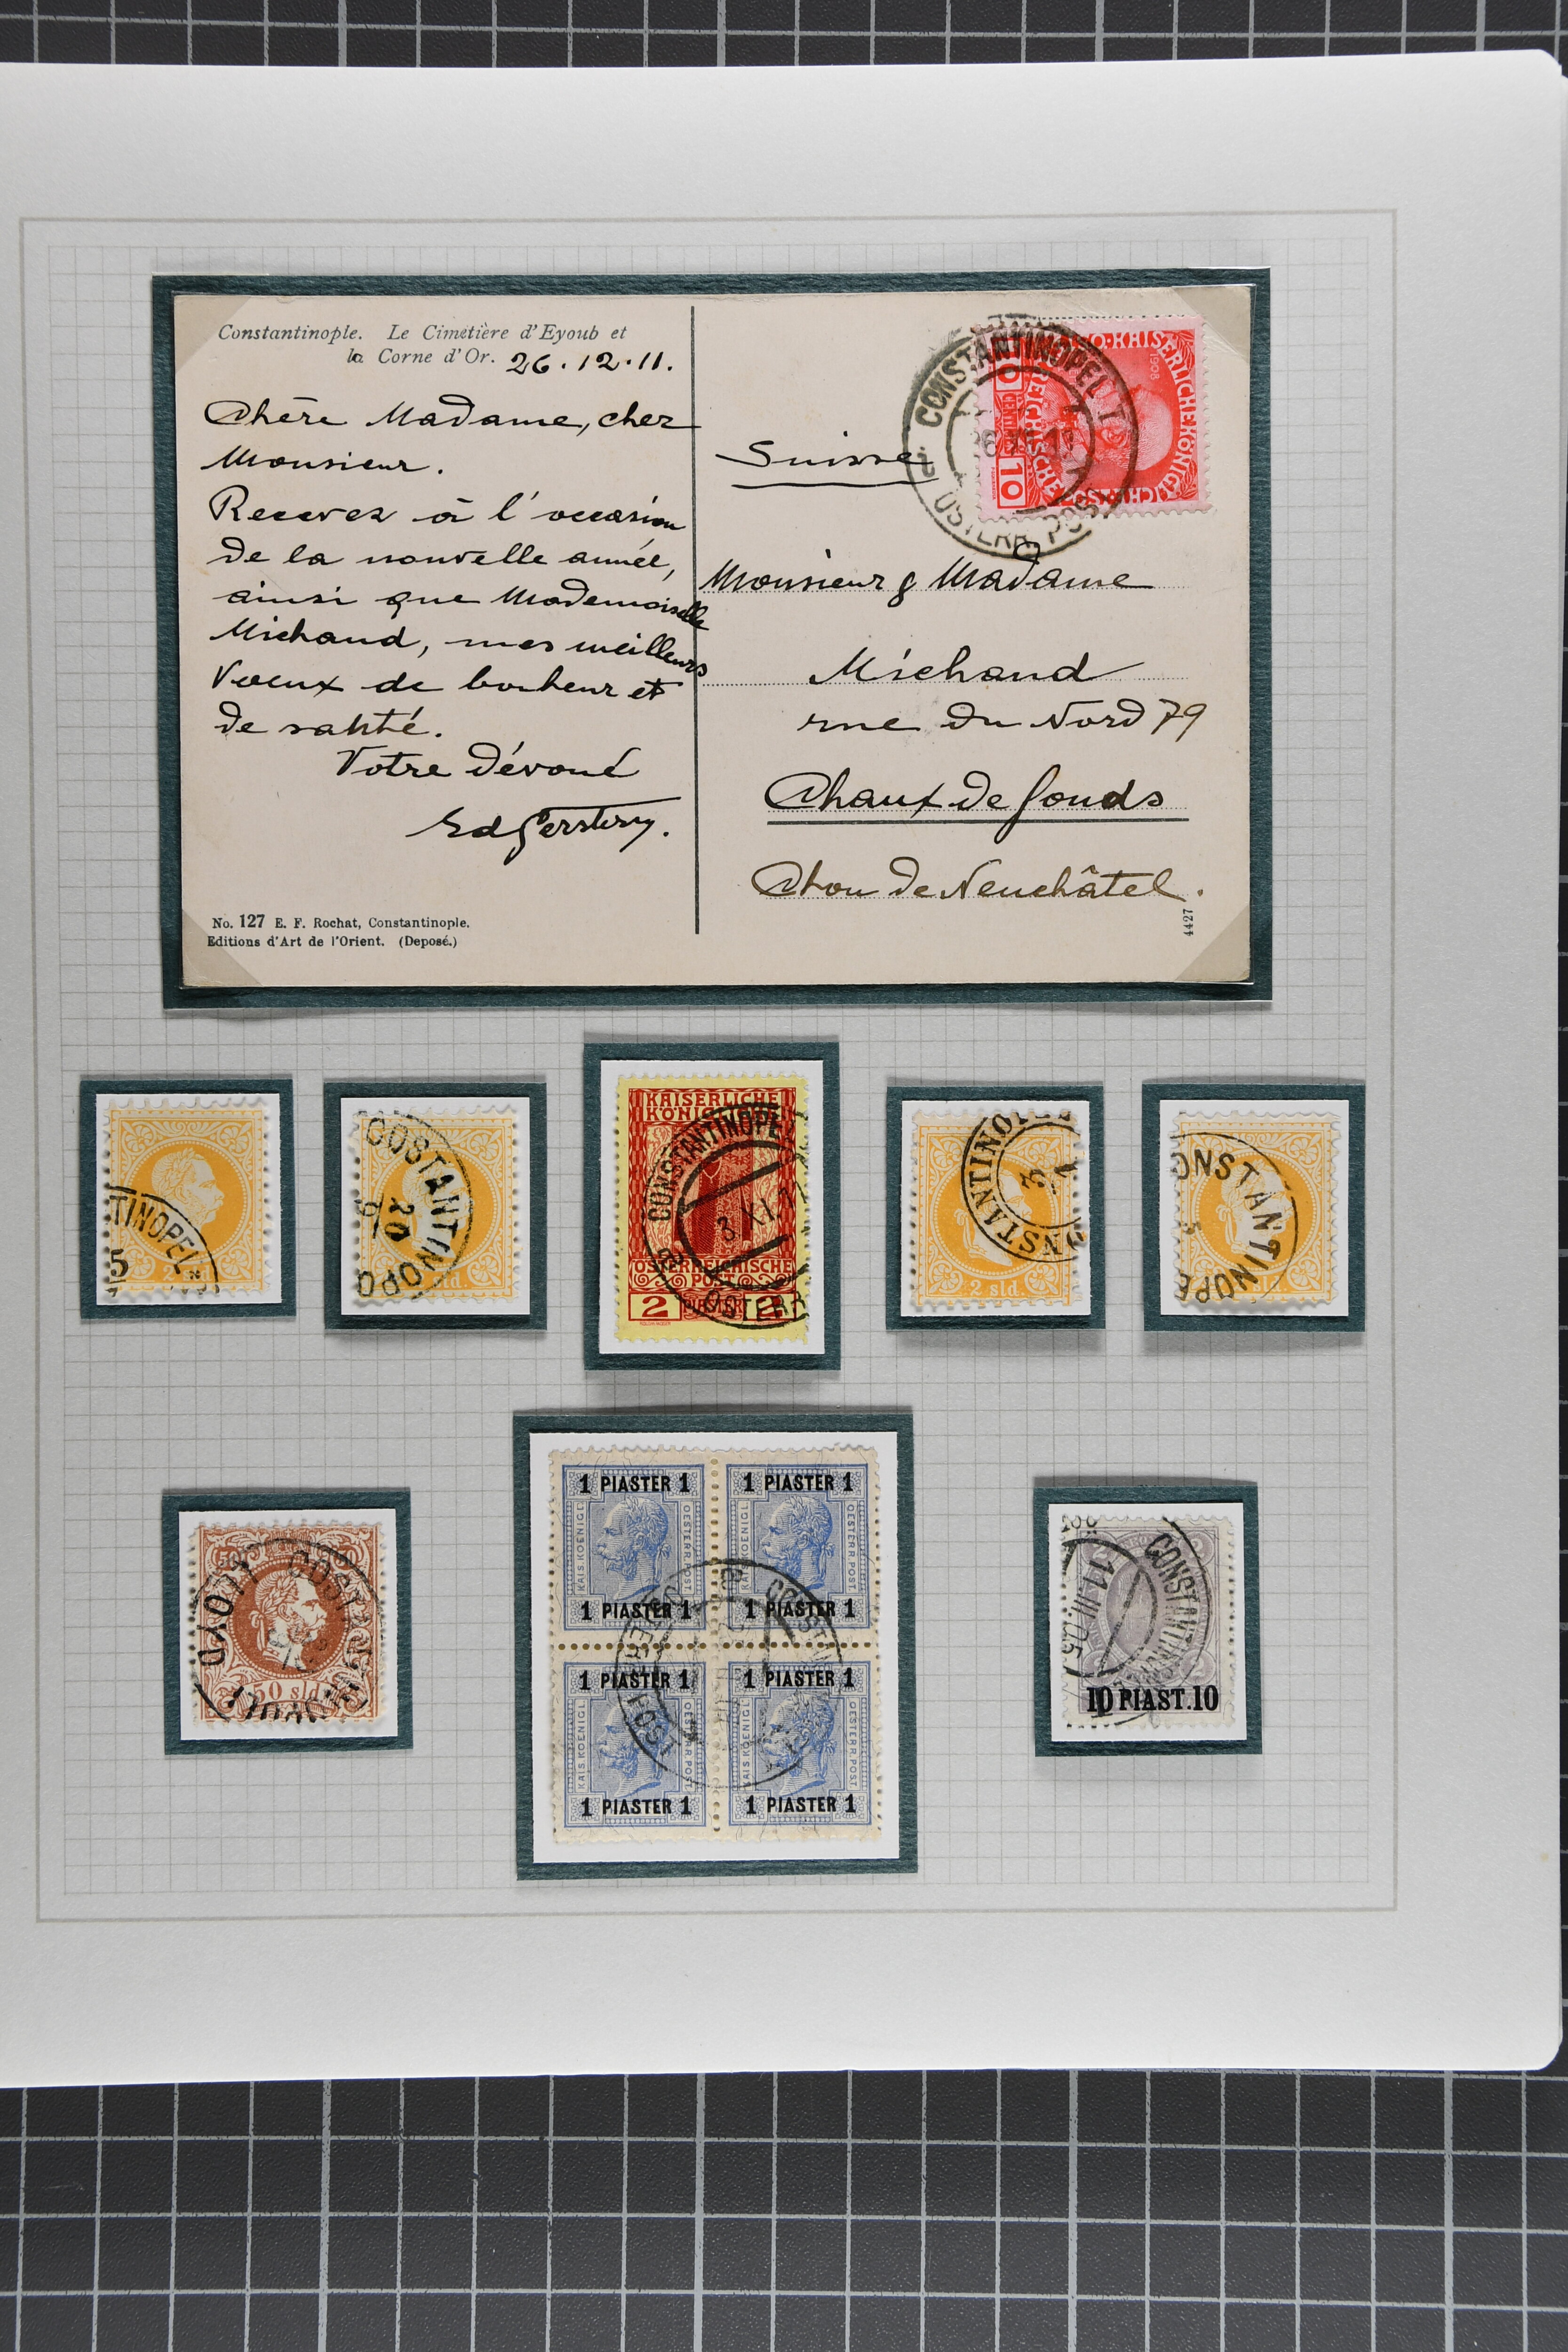 Constantinople. Le Cimetière d'Eyoub et
la Corne d'Or. 26.12.11.
Chère Madame, cher
Monsieur.
Recevez à l'occasion
de la nouvelle année,
ainsi que Mademoiselle
Michaud, mes meilleurs
Voeux de bonheur et
de sahté.
Votre dévoué
No. 127 E. F. Rochat, Constantinople.
Editions d'Art de l'Orient. (Deposé.)
CONSTANTINOPEL
ÖSTERR. POST
KAISERLICHEKÖNIGLICHE
REICHISCHE
1908
10
10
Suisse
Monsieur & Madame
Michaud
rue du Nord 79
Chaux de fonds
de Neuchâtel.
4427
TINOPEL
5
COSTANTINOPO
20
KAISERLICHE
CONSTANTINOPEL
3 XI
ÖSTERREICHISCHE
POST
2 2
ÖSTERR
ONSTANTINO
2 sld.
ONSTANTINOPE
5
LLOYD
COSTAN
50 sld.
1 PIASTER 1
1 PIASTER 1
KAIS. KOENIGL.
OESTERR. POST
KAIS. KOENIGL.
OESTERR. POST
1 PIASTER 1
1 PIASTER 1
1 PIASTER 1
1 PIASTER 1
KAIS. KOENIGL.
OESTERR. POST
KAIS. KOENIGL.
OESTERR. POST
1 PIASTER 1
1 PIASTER 1
CONSTANTINOPEL
11.III.05
10 PIAST. 10